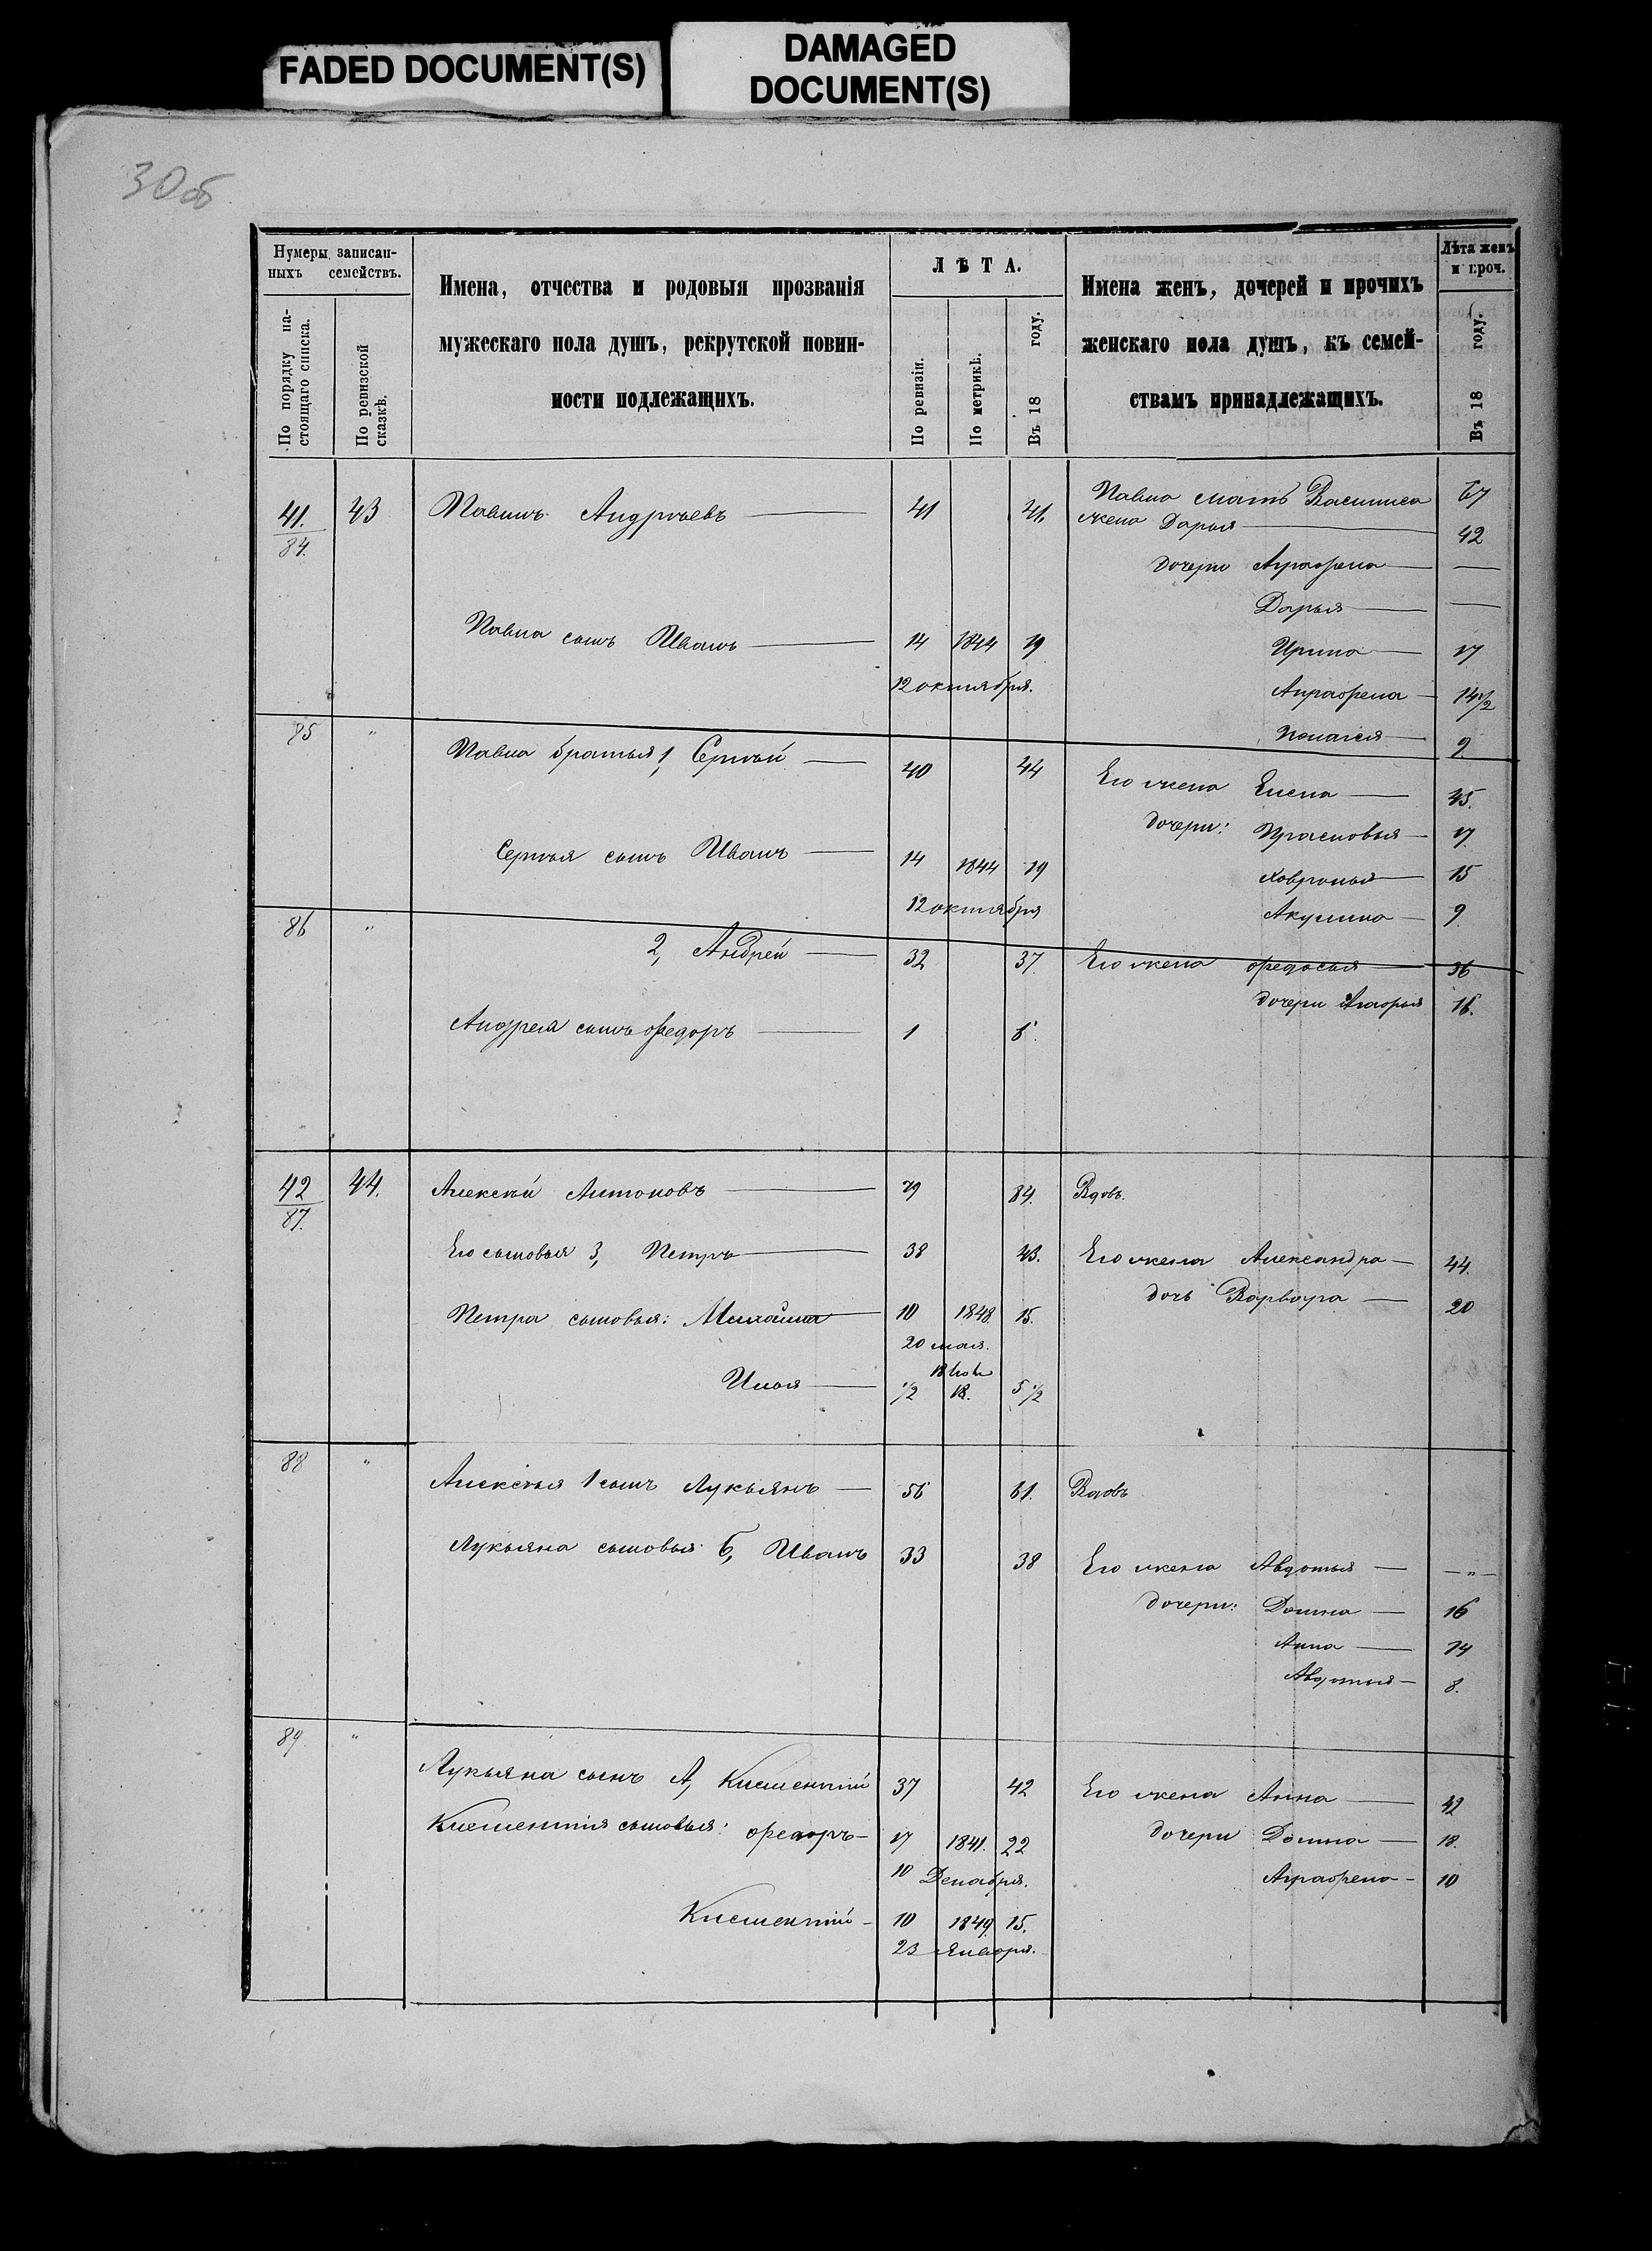 FADED DOCUMENT(S)
DAMAGED
DOCUMENT(S)
30 об
Нумеры записан-
ныхъ семействъ.
По порядку на-
стоящаго списка.
По ревизской
сказкѣ.
Имена, отчества и родовыя прозванія
мужескаго пола душъ, рекрутской повин-
ности подлежащихъ.
ЛѢТА.
По ревизіи.
По метрикѣ.
Въ 18 году.
Имена женъ, дочерей и прочихъ
женскаго пола душъ, къ семей-
ствамъ принадлежащихъ.
Лѣта женъ
и проч.
Въ 18 году.
41. 43 Павилъ Андреевъ — 41
84.
Павла мать Василиса 67
жена Дарья — 42
дочери Аграфена — —
Дарья — —
Павла сынъ Иванъ — 14 1844 19 Ирина — 17
12 октября. Аграфена — 14 1/2
Пелагея — 9.
85 " Павла братья 1, Сергѣй — 40 44 Его жена Елена — 45.
дочери: Прасковья — 17
Сергѣя сынъ Иванъ — 14 1844 19 Хавронья — 15
12 октября Акулина — 9.
86 " 2, Андрей — 32 37 Его жена Федосья — 36
дочери Агафья 16.
Андрея сынъ Федоръ — 1 6.
42 44. Алексѣй Антоновъ — 79 84. Вдовъ.
87.
Его сыновья 3, Петръ — 38 43. Его жена Александра — 44.
дочь Варвара — 20
Петра сыновья: Михайла 10 1848. 15.
20 мая.
Илья — 1/2 18. 5 1/2
88 " Алексѣя 1 сынъ Лукьянъ — 56 61. Вдовъ
Лукьяна сыновья Б, Иванъ 33 38 Его жена Авдотья — — " —
дочери: Домна — 16
Анна — 14
Авдотья — 8.
89 " Лукьяна сынъ А, Клементій 37 42 Его жена Анна — 42
Клементія сыновья: Федоръ — 17 1841. 22 дочери Домна — 18.
10 Декабря. Аграфена — 10
Клементій — 10 1849. 15.
23 Января.